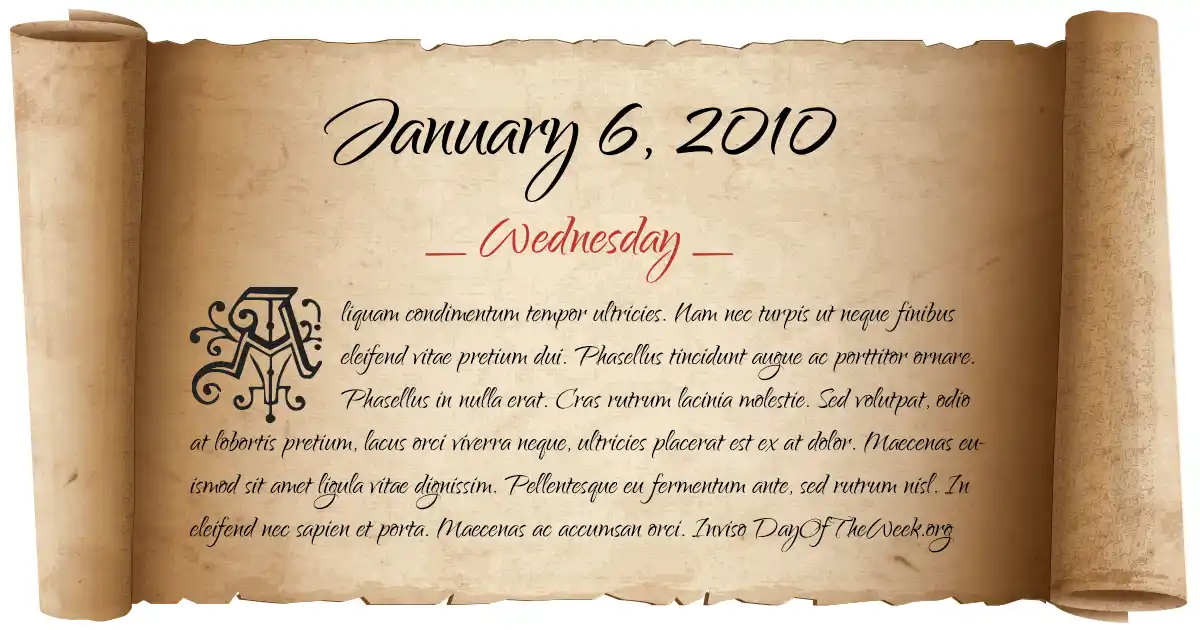 January 6, 2010
Wednesday
Aliquam condimentum tempor ultricies. Nam nec turpis ut neque finibus
eleifend vitae pretium dui. Phasellus tincidunt augue ac porttitor ornare.
Phasellus in nulla erat. Cras rutrum lacinia molestie. Sed volutpat, odio
at lobortis pretium, lacus orci viverra neque, ultricies placerat est ex at dolor. Maecenas eu-
ismod sit amet ligula vitae dignissim. Pellentesque eu fermentum ante, sed rutrum nisl. In
eleifend nec sapien et porta. Maecenas ac accumsan orci. Inviso DayOfTheWeek.org